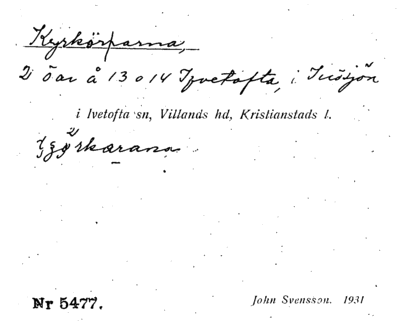 Kyrkörparna,
2 öar å 13 o 14 Ifvetofta, i
i Ivetofta sn, Villands hd, Kristianstads l.
Nr 5477. John Svensson. 1931